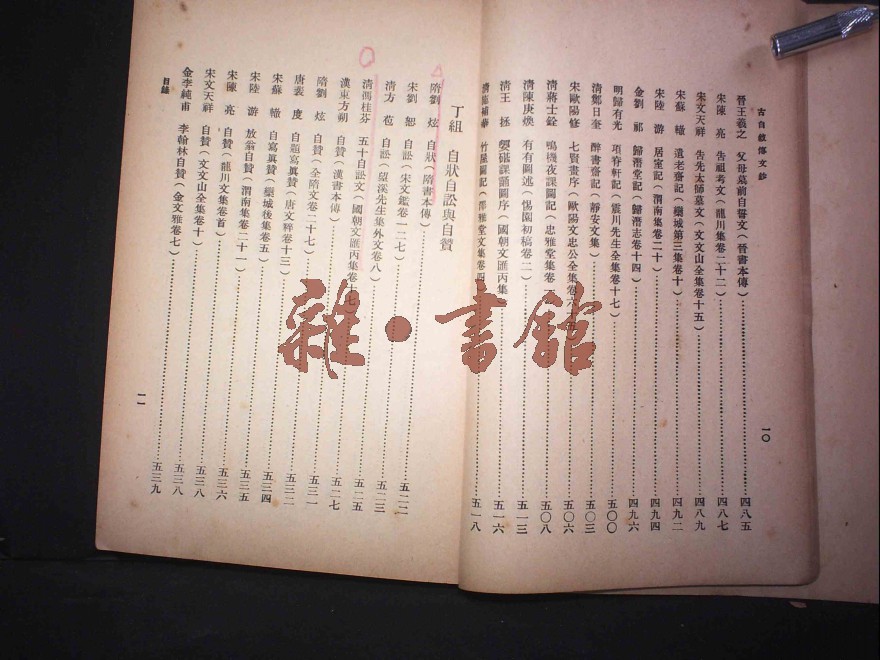 古自敘傳文鈔
晉王羲之 父母墓前自誓文(晉書本傳)四八五
宋陳 亮 告祖考文(龍川集卷二十二)四八七
宋文天祥 告先太師墓文(文文山全集卷十五)四八九
宋蘇 轍 遺老齋記(欒城第三集卷十)四九二
宋陸 游 居室記(渭南集卷二十)四九四
金劉 祁 歸潛堂記(歸潛志卷十四)四九六
明歸有光 項脊軒記(震川先生全集卷十七)五〇〇
清鄭日奎 醉書齋記(靜安文集)五〇三
宋歐陽修 七賢畫序(歐陽文忠公全集卷六 五〇六
清蔣士銓 鳴機夜課圖記(忠雅堂集卷 五〇八
清陳庚煥 有有圖述(惕園初稿卷二)五一三
清王 拯 媭碪課誦圖序(國朝文匯丙集 五一六
竹屋圖記( 雅堂文集卷四 五一八
一〇
丁組 自狀自訟與自贊
隋劉 炫 自狀(隋書本傳)
宋劉 恕 自訟(宋文鑑卷一二七)五二二
清方 苞 自訟(望溪先生集外文卷八)五二三
清馮桂芬 五十自訟文(國朝文匯丙集卷十七 五二五
漢東方朔 自贊(漢書本傳)五二七
隋劉 炫 自贊(全隋文卷二十七)五三一
唐裴 度 自題寫眞贊(唐文粹卷十三)五三二
宋蘇 轍 自寫眞贊(欒城後集卷五)五三四
宋陸 游 放翁自贊(渭南集卷二十一)五三五
宋陳 亮 自贊(龍川文集卷首)五三六
宋文天祥 自贊(文文山全集卷十)五三八
金李純甫 李翰林自贊(金文雅卷七)五三八
五三九
目錄
一一
雜·書館